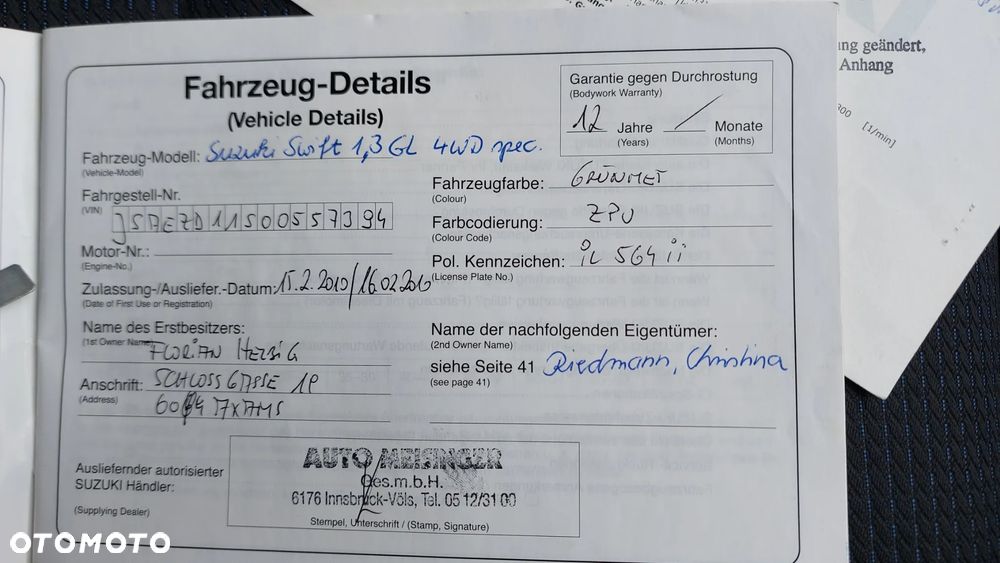 ng geändert,
Anhang
[1/min]
Fahrzeug-Details
(Vehicle Details)
Garantie gegen Durchrostung
(Bodywork Warranty)
12 Jahre / Monate
(Years) (Months)
Fahrzeug-Modell: Suzuki Swift 1,3 GL 4WD spec.
(Vehicle-Model)
Fahrgestell-Nr.
(VIN) JSAEZD11S00557394
Motor-Nr.:
(Engine-No.)
Zulassung-/Ausliefer.-Datum: 15.2.2010/16.02.2010
(Date of First Use or Registration)
Fahrzeugfarbe: GRÜNMET
(Colour)
Farbcodierung: ZPU
(Colour Code)
Pol. Kennzeichen: iL 564 ii
(License Plate No.)
Name des Erstbesitzers:
(1st Owner Name) FLORIAN
Anschrift: SCHLOSSGASSE
(Address)
AXAMS
Name der nachfolgenden Eigentümer:
(2nd Owner Name)
siehe Seite 41 Riedmann, Christina
(see page 41)
Ausliefernder autorisierter
SUZUKI Händler:
(Supplying Dealer)
AUTO MEISINGER
Ges.m.b.H.
6176 Innsbruck-Völs, Tel. 05 12/31 00
Stempel, Unterschrift / (Stamp, Signature)
OTOMOTO